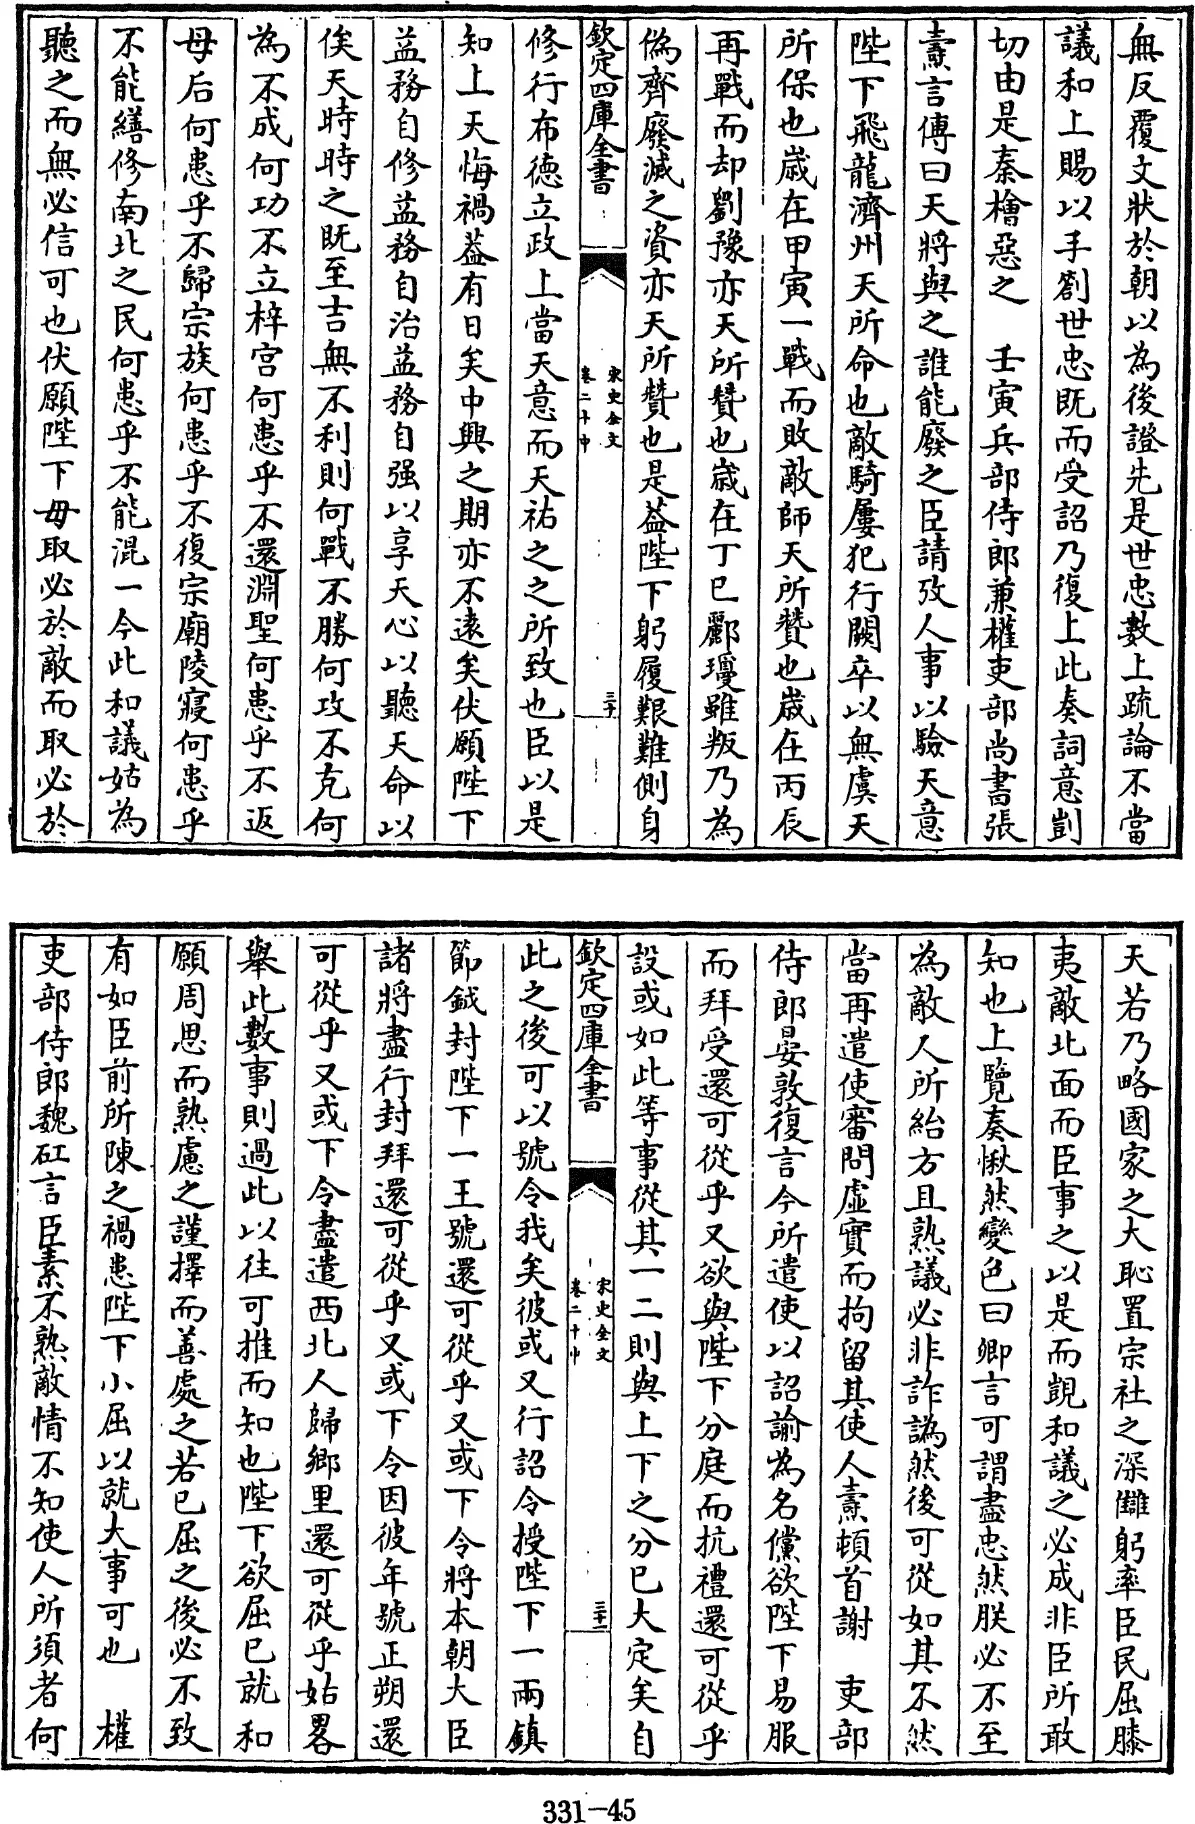 無反覆文狀於朝以為後證先是世忠數上疏論不當
議和上賜以手劄世忠既而受詔乃復上此奏詞意剴
切由是秦檜惡之　壬寅兵部侍郎兼權吏部尚書張
燾言傳曰天將與之誰能廢之臣請攷人事以驗天意
陛下飛龍濟州天所命也敵騎屢犯行闕卒以無虞天
所保也歳在甲寅一戰而敗敵師天所贊也歳在丙辰
再戰而却劉豫亦天所贊也歳在丁巳酈瓊雖叛乃為
偽齊廢滅之資亦天所贊也是葢陛下躬履艱難側身
欽定四庫全書
宋史全文
卷二十中
三十
修行布德立政上當天意而天祐之之所致也臣以是
知上天悔禍葢有日矣中興之期亦不逺矣伏願陛下
益務自修益務自治益務自强以享天心以聽天命以
俟天時時之既至吉無不利則何戰不勝何攻不克何
為不成何功不立梓宫何患乎不還淵聖何患乎不返
母后何患乎不歸宗族何患乎不復宗廟陵寢何患乎
不能繕修南北之民何患乎不能混一今此和議姑為
聽之而無必信可也伏願陛下毋取必於敵而取必於
天若乃略國家之大恥置宗社之深讎躬率臣民屈膝
夷敵北面而臣事之以是而覬和議之必成非臣所敢
知也上覽奏愀然變色曰卿言可謂盡忠然朕必不至
為敵人所紿方且熟議必非詐譌然後可從如其不然
當再遣使審問虛實而拘留其使人燾頓首謝　吏部
侍郎晏敦復言今所遣使以詔諭為名儻欲陛下易服
而拜受還可從乎又欲與陛下分庭而抗禮還可從乎
設或如此等事從其一二則與上下之分已大定矣自
欽定四庫全書
宋史全文
卷二十中
三十一
此之後可以號令我矣彼或又行詔令授陛下一兩鎮
節鉞封陛下一王號還可從乎又或下令將本朝大臣
諸將盡行封拜還可從乎又或下令因彼年號正朔還
可從乎又或下令盡遣西北人歸鄉里還可從乎姑畧
舉此數事則過此以往可推而知也陛下欲屈已就和
願周思而熟慮之謹擇而善處之若已屈之後必不致
有如臣前所陳之禍患陛下小屈以就大事可也　權
吏部侍郎魏矼言臣素不熟敵情不知使人所須者何
331-45